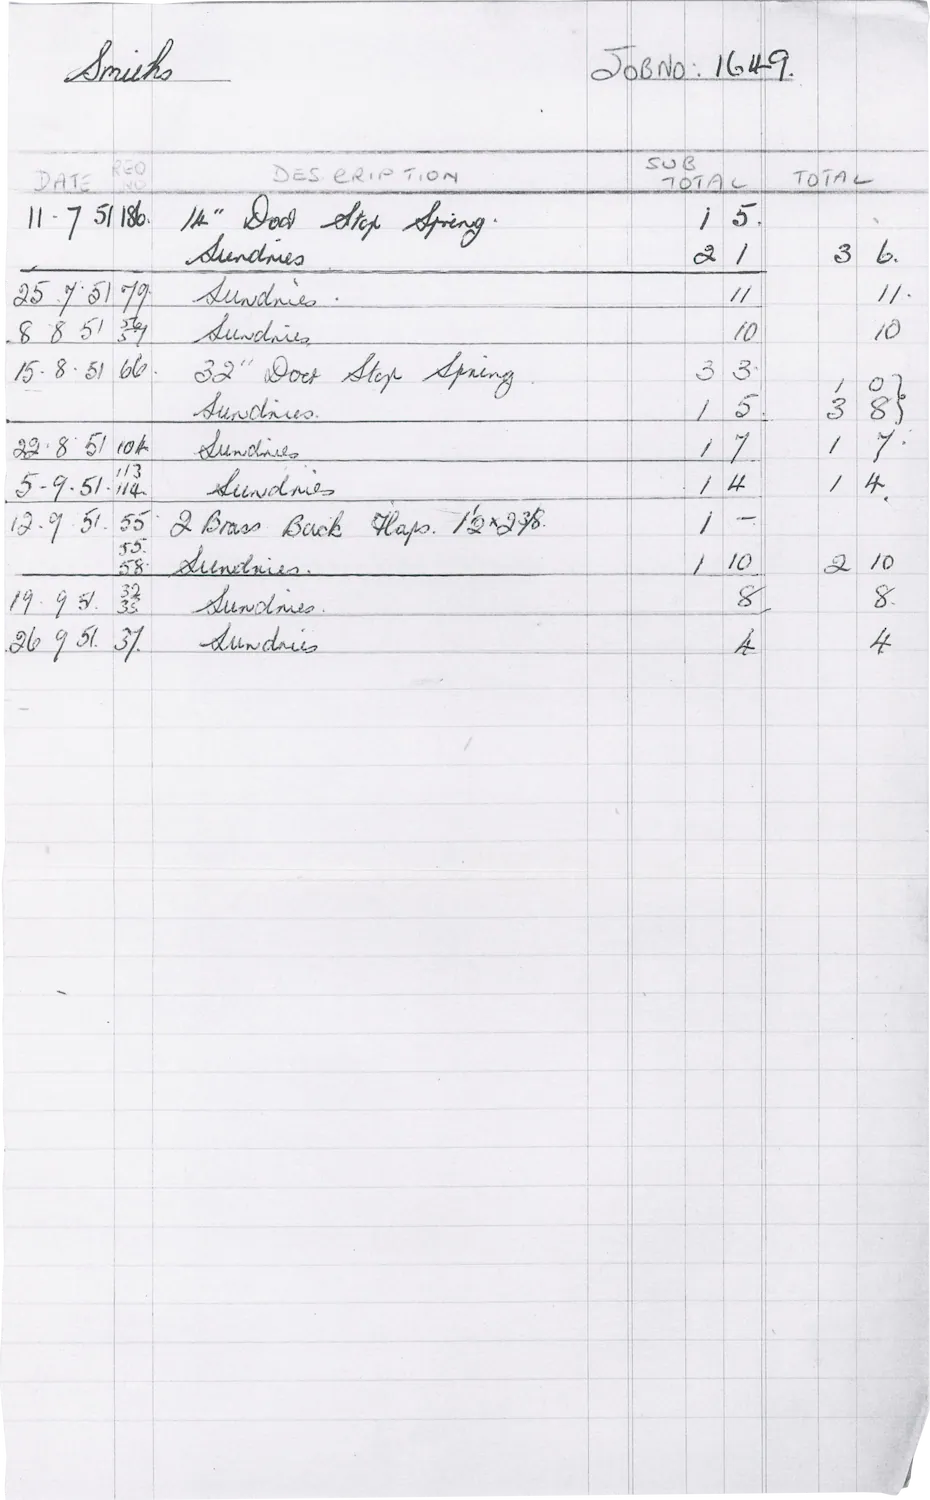 Smiths JOB NO: 1649.
DATE REQ NO DESCRIPTION SUB TOTAL TOTAL
11-7 51 186. 14" Door Stop Spring. 1 5.
Sundries 2 1 3 6.
25.7.51 79. Sundries. 11 11.
8 8 51 57 Sundries 10 10
15.8.51 66. 32" Door Stop Spring 3 3. 1 0}
Sundries. 1 5. 3 8}
22.8 51 104 Sundries 1 7 1 7.
5-9.51. 113 114. Sundries 1 4 1 4.
12.9 51. 55 2 Brass Back Flaps. 1½ x 2⅜. 1 -
55.
58. Sundries. 1 10 2 10
19.9 51. 32 35 Sundries. 8 8.
26 9 51. 37. Sundries 4 4